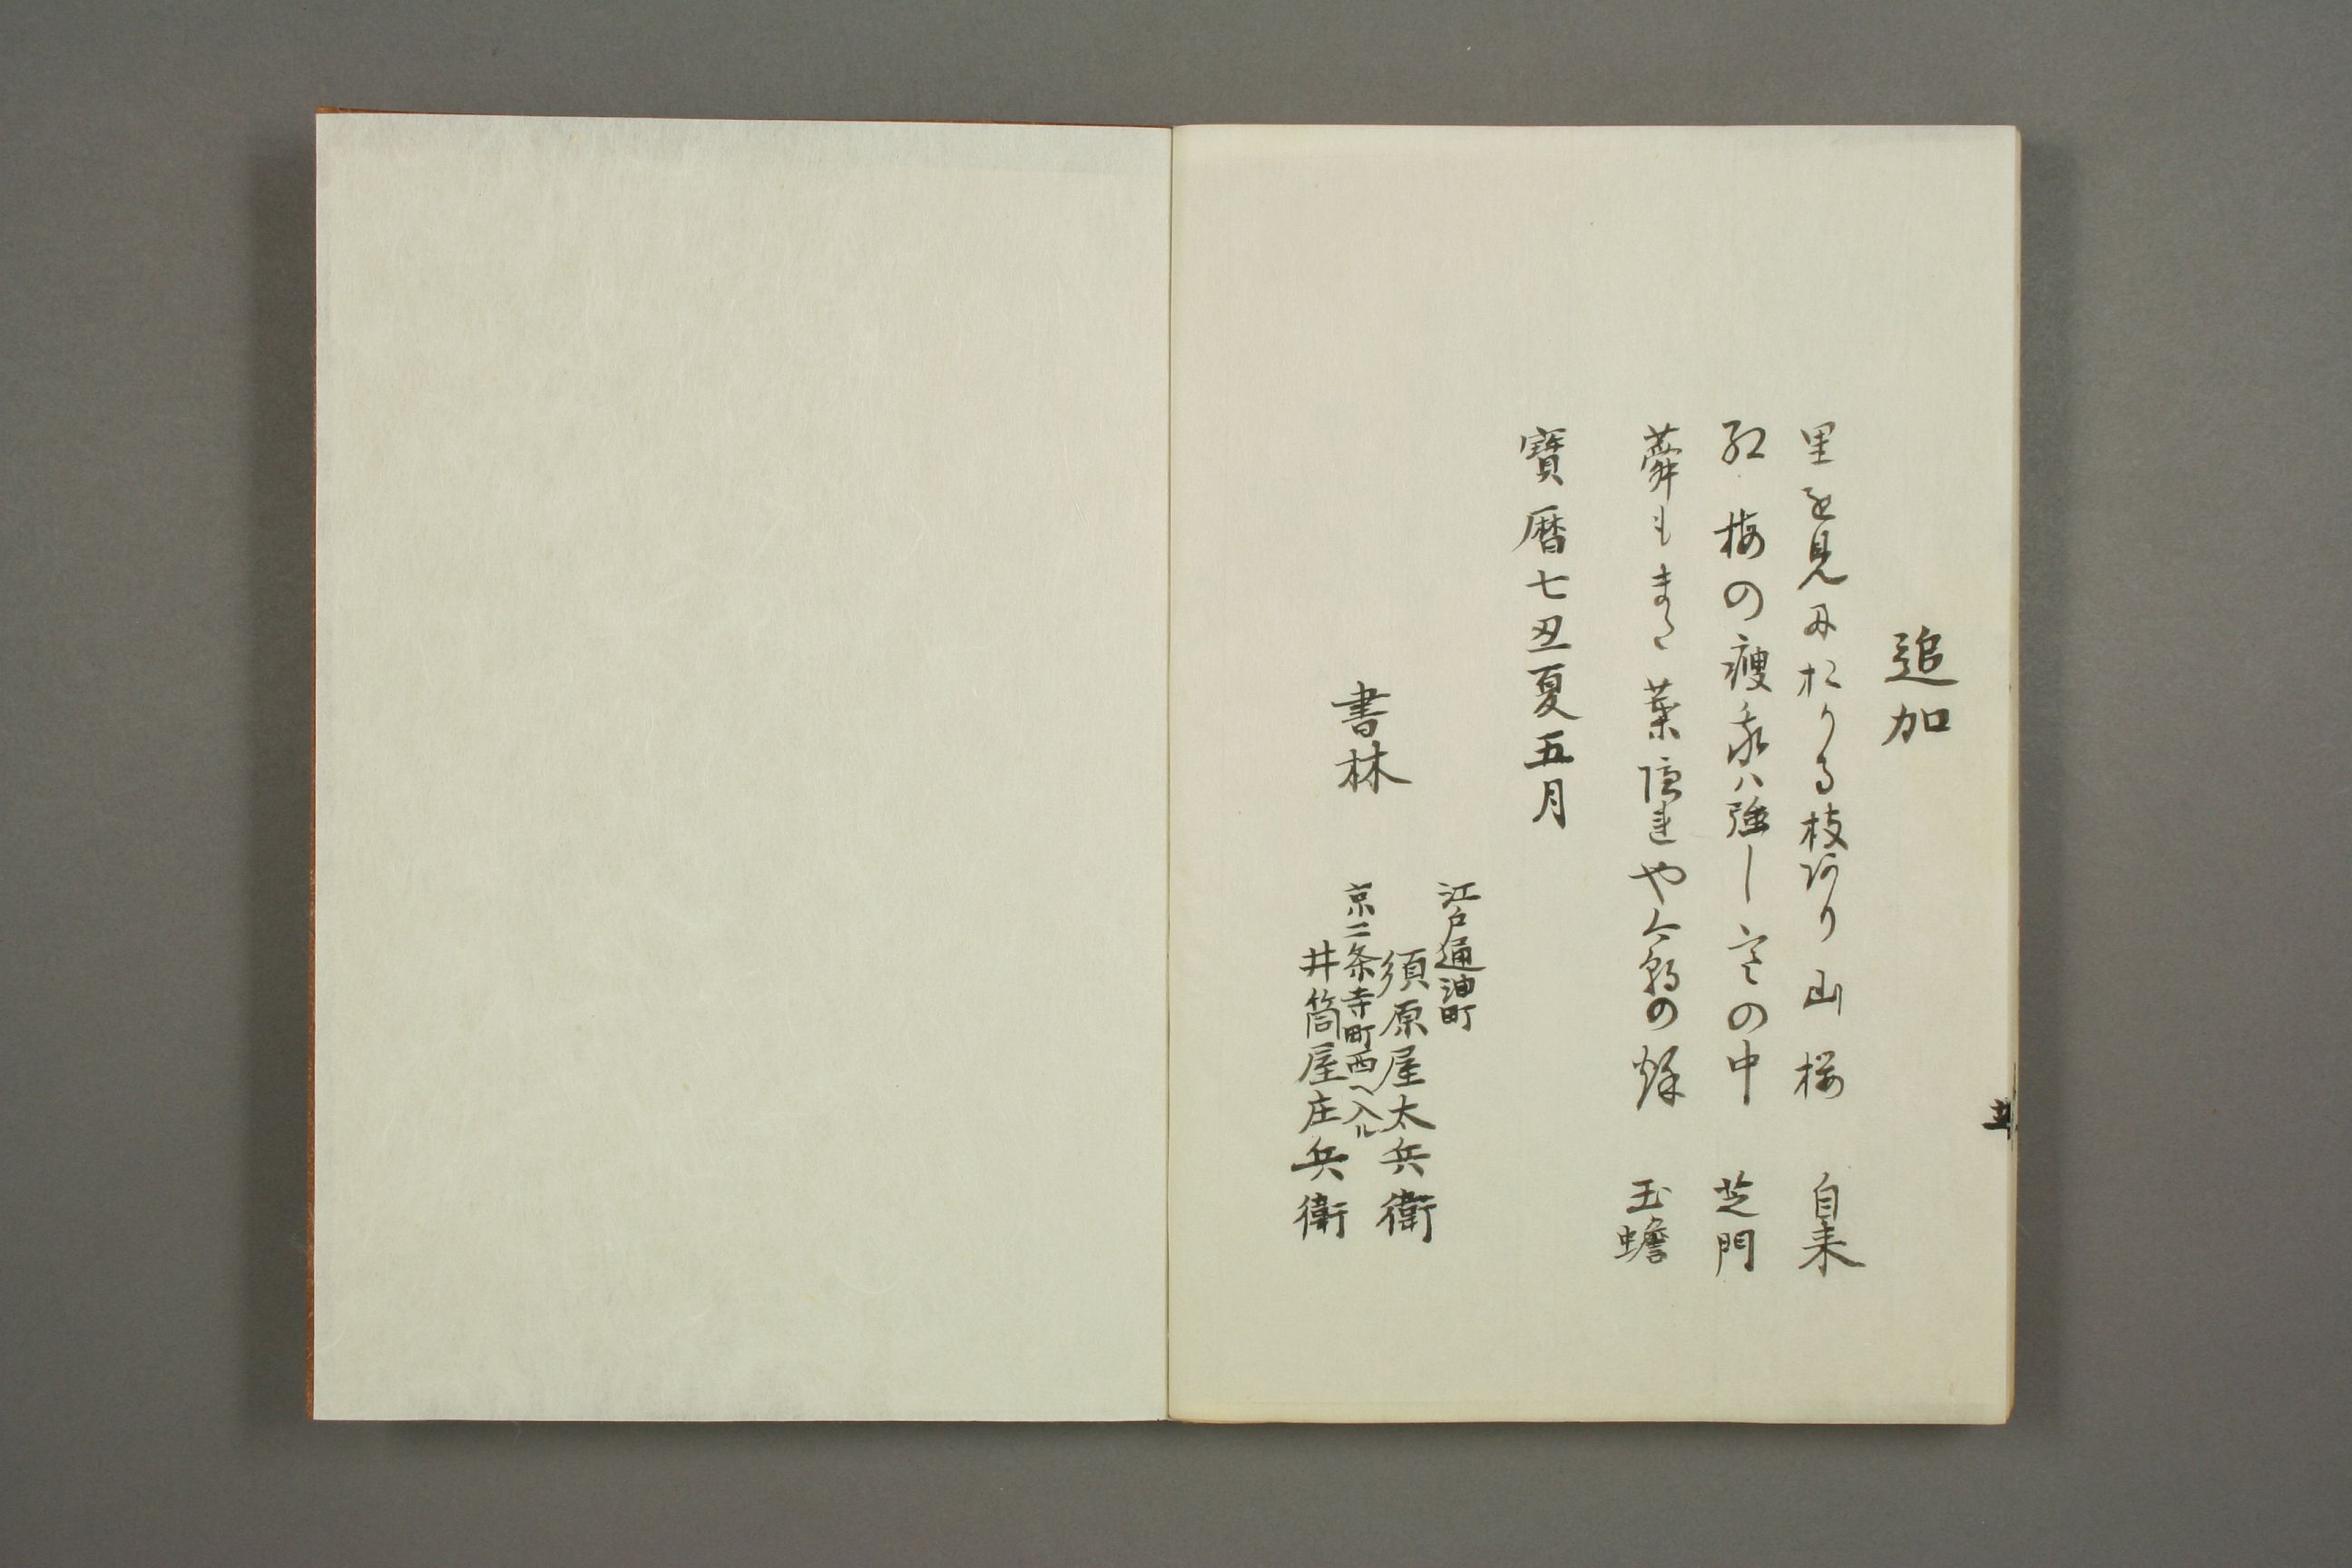 追加
里を見におりる枝あり山桜 自耒
紅梅の痩氣は強し雪の中 芝門
蕣もまた葉隠れや今朝の 玉蟾
寶暦七丑夏五月
書林
江戸通油町
須原屋太兵衛
京二条寺町西へ入ル
井筒屋庄兵衛